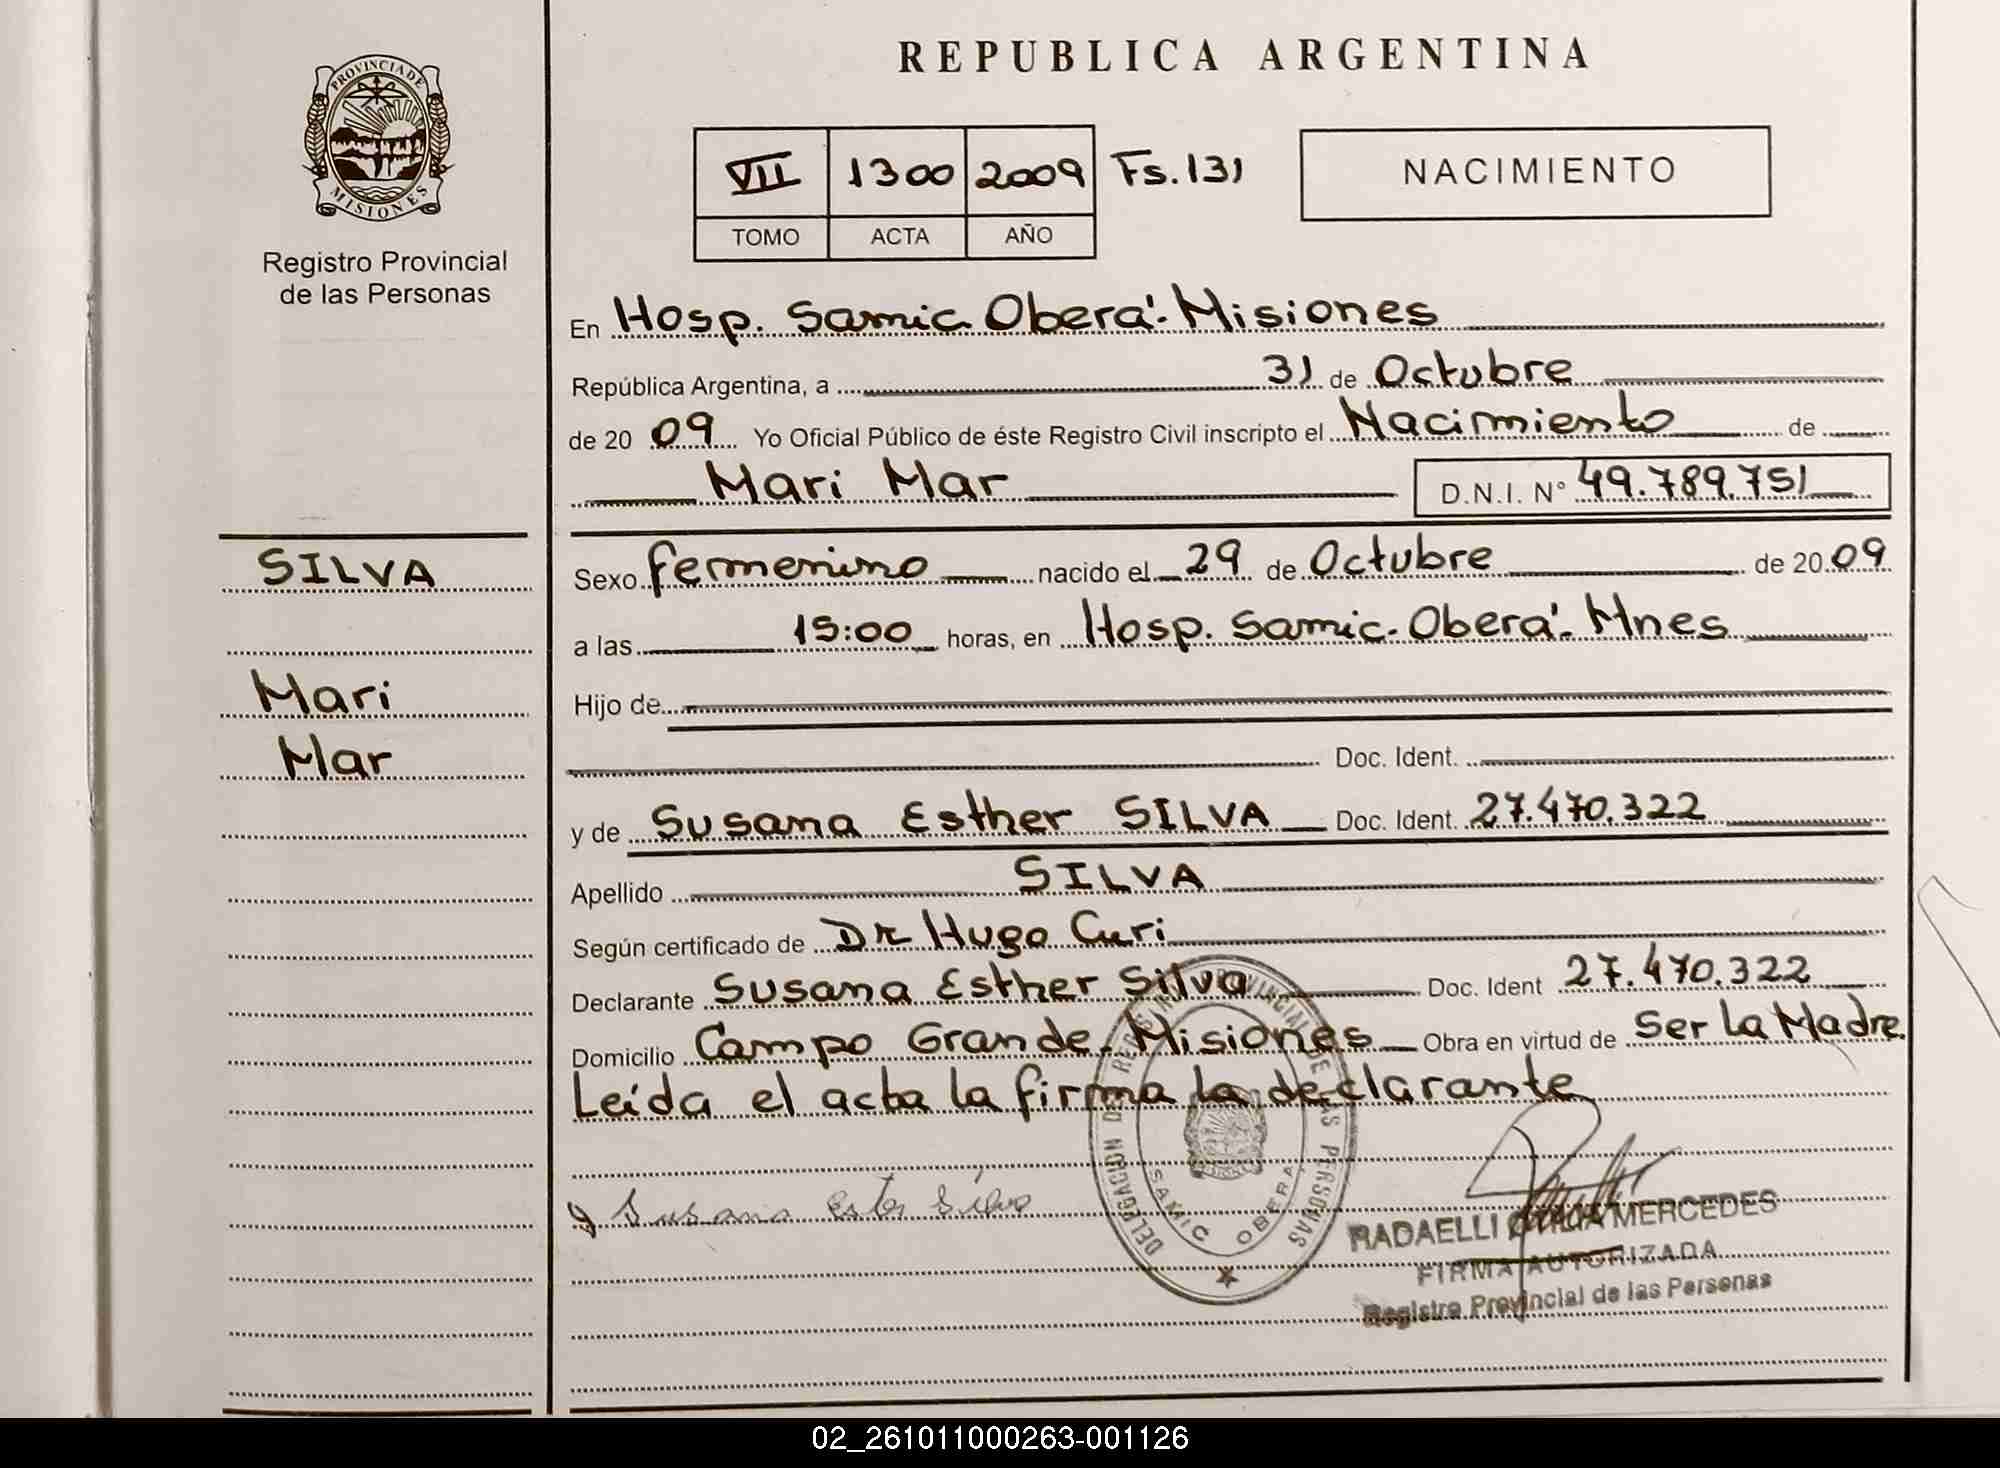 PROVINCIA DE
MISIONES
Registro Provincial
de las Personas
SILVA
Mari
Mar
REPUBLICA ARGENTINA
VII 1300 2009 Fs. 131
TOMO ACTA AÑO
NACIMIENTO
En Hosp. Samic. Oberá. Misiones
República Argentina, a 31 de Octubre
de 20 09 Yo Oficial Público de éste Registro Civil inscripto el Nacimiento de
Mari Mar D.N.I. N° 49.789.751
Sexo femenino nacido el 29 de Octubre de 20 09
a las 15:00 horas, en Hosp. Samic. Oberá. Mnes
Hijo de
Doc. Ident.
y de Susana Esther SILVA Doc. Ident. 27.470.322
Apellido SILVA
Según certificado de Dr Hugo Curi
Declarante Susana Esther Silva Doc. Ident 27.470.322
Domicilio Campo Grande. Misiones Obra en virtud de Ser La Madre.
Leída el acta la firma la declarante
DELEGACION DEL REGISTRO PROVINCIAL DE LAS PERSONAS
SAMIC OBERA
Susana Ester Silva
RADAELLI MERCEDES
FIRMA AUTORIZADA
Registro Provincial de las Personas
02_261011000263-001126